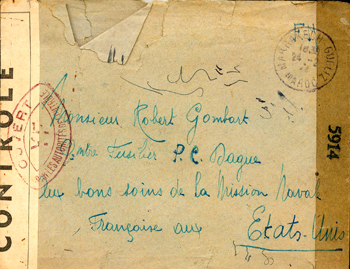 CONTRÔLE
OUVERT
PAR LES AUTORITÉS
MARRAKECH-GUELIZ
MAROC
5914
Monsieur Robert Gombart
Fusilier P.C. Bague
aux bons soins de la Mission Navale
Française aux
Etats-Unis